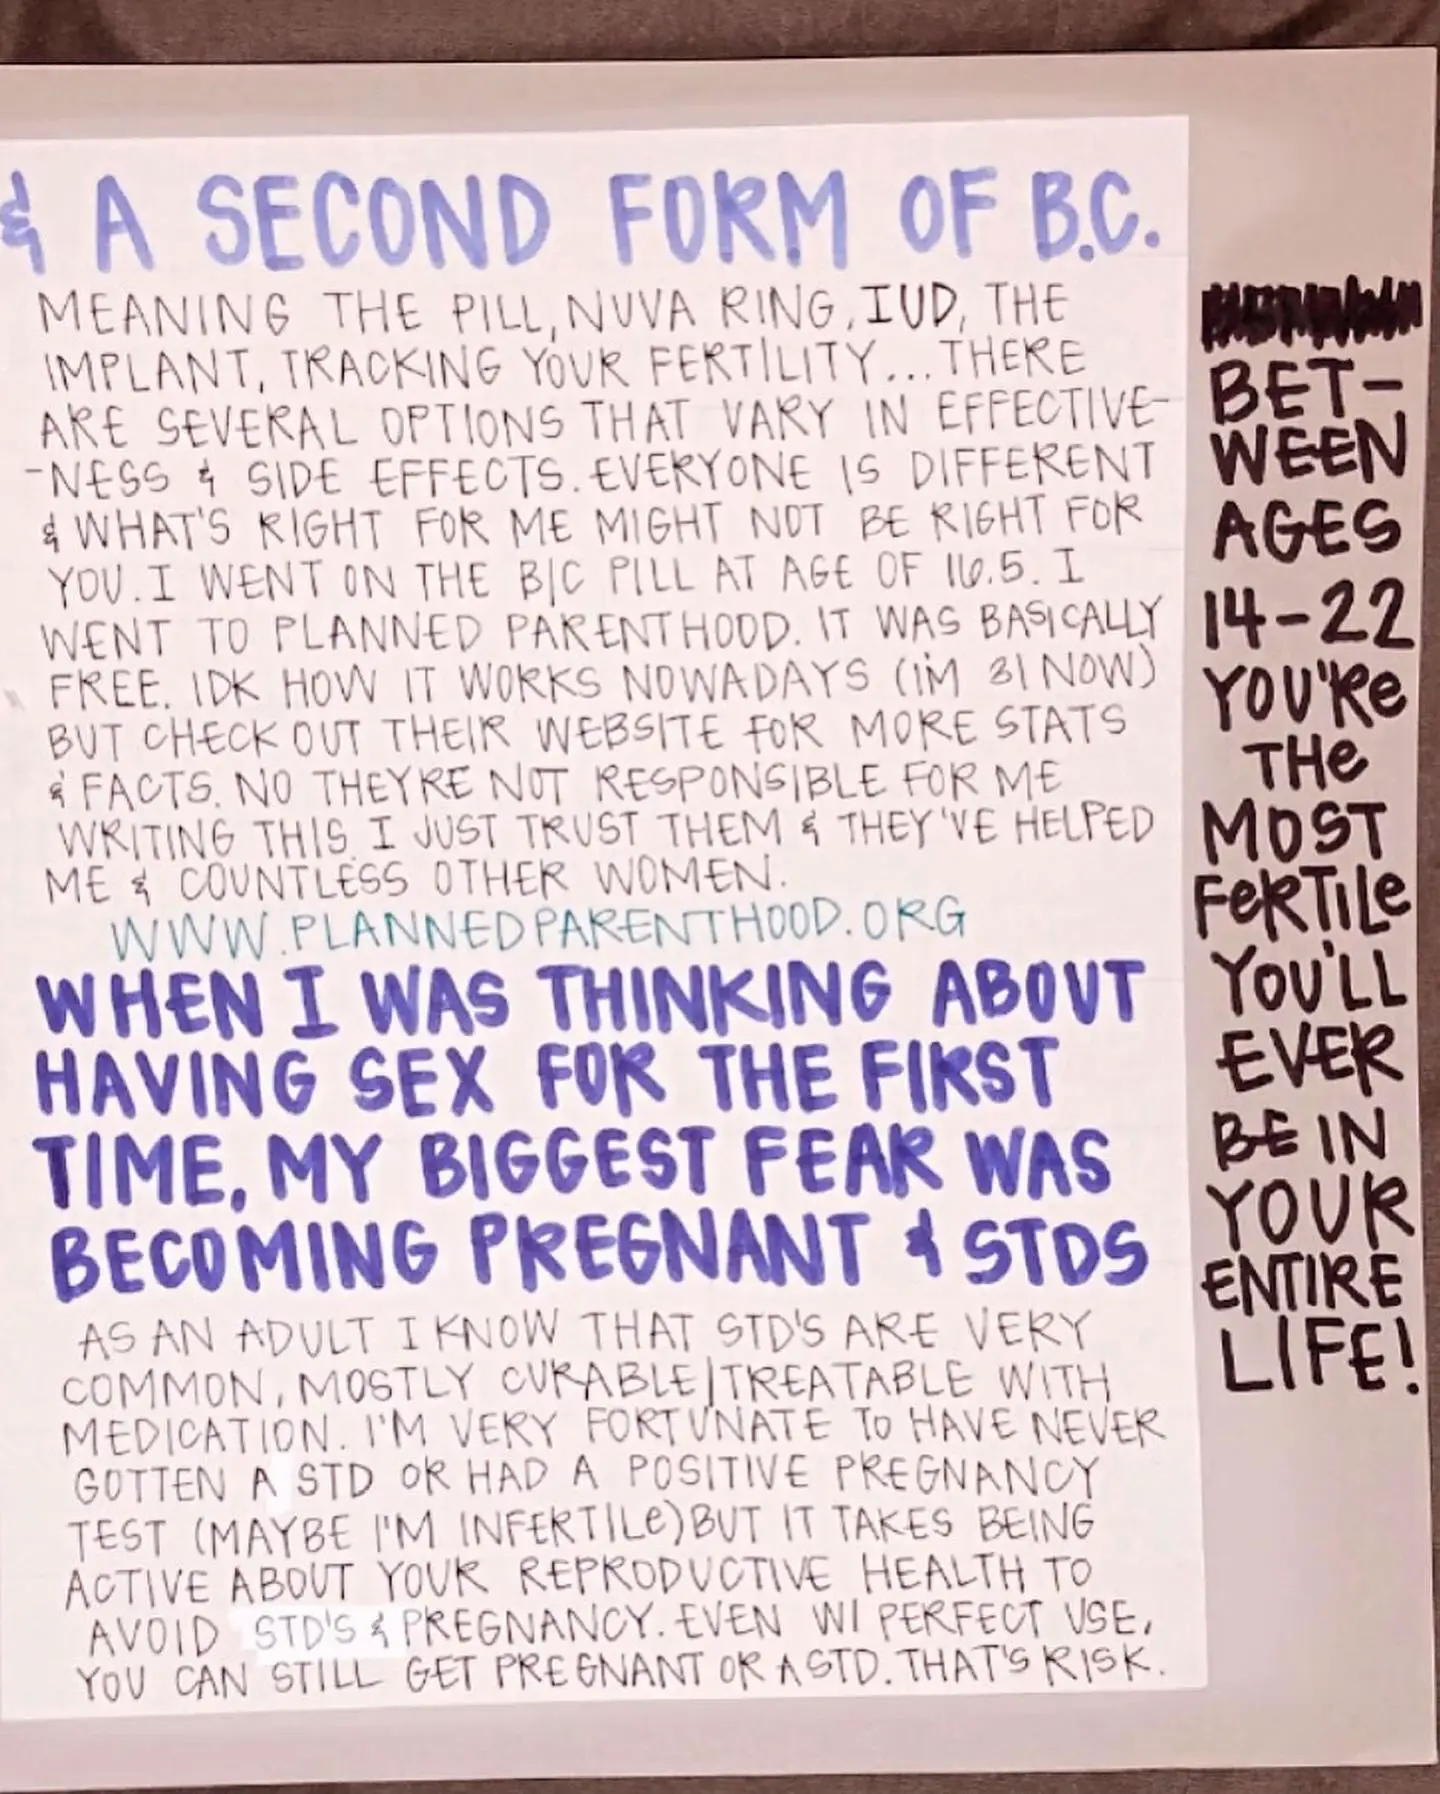 & A SECOND FORM OF B.C.
MEANING THE PILL, NUVA RING, IUD, THE
IMPLANT, TRACKING YOUR FERTILITY... THERE
ARE SEVERAL OPTIONS THAT VARY IN EFFECTIVE-
-NESS & SIDE EFFECTS. EVERYONE IS DIFFERENT
& WHAT'S RIGHT FOR ME MIGHT NOT BE RIGHT FOR
YOU. I WENT ON THE B/C PILL AT AGE OF 16.5. I
WENT TO PLANNED PARENTHOOD. IT WAS BASICALLY
FREE. IDK HOW IT WORKS NOWADAYS (I'M 31 NOW)
BUT CHECK OUT THEIR WEBSITE FOR MORE STATS
& FACTS. NO THEYRE NOT RESPONSIBLE FOR ME
WRITING THIS. I JUST TRUST THEM & THEY'VE HELPED
ME & COUNTLESS OTHER WOMEN.
WWW.PLANNEDPARENTHOOD.ORG
WHEN I WAS THINKING ABOUT
HAVING SEX FOR THE FIRST
TIME, MY BIGGEST FEAR WAS
BECOMING PREGNANT & STDS
AS AN ADULT I KNOW THAT STD'S ARE VERY
COMMON, MOSTLY CURABLE/TREATABLE WITH
MEDICATION. I'M VERY FORTUNATE TO HAVE NEVER
GOTTEN A STD OR HAD A POSITIVE PREGNANCY
TEST (MAYBE I'M INFERTILE) BUT IT TAKES BEING
ACTIVE ABOUT YOUR REPRODUCTIVE HEALTH TO
AVOID STD'S & PREGNANCY. EVEN W/ PERFECT USE,
YOU CAN STILL GET PREGNANT OR A STD. THAT'S RISK.
BET-
WEEN
AGES
14-22
YOU'Re
THe
MOST
FeRTiLe
YOU'LL
EVER
BE IN
YOUR
ENTIRE
LIFE!